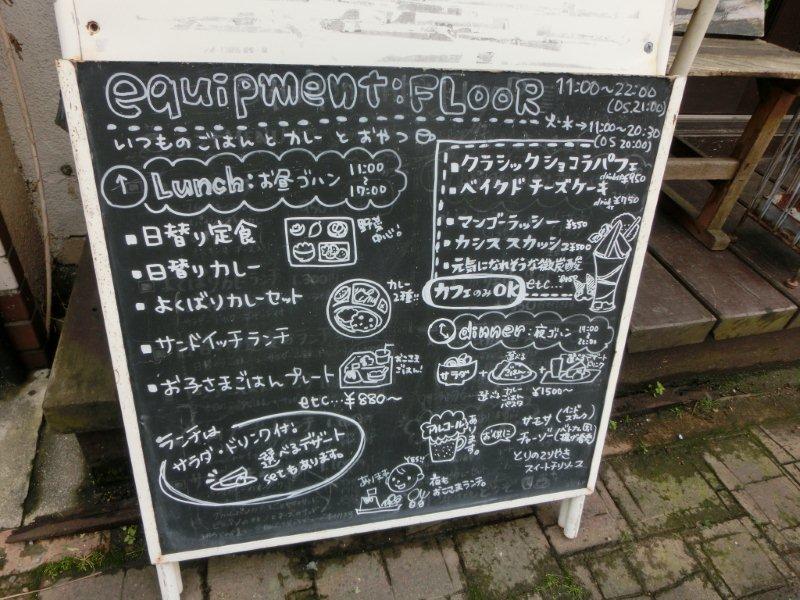 equipment:FLOOR
11:00~22:00
(OS.21:00)
火・水→11:00~20:30
(OS 20:00)
いつものごはんとカレーとおやつ
Lunch:お昼ゴハン
11:00
17:00
・日替り定食
野菜
中心!
・日替りカレー
・よくばりカレーセット
カレー
2種!!
・サンドイッチランチ
・お子さまごはんプレート
おこさま
ごはん!
etc...¥880~
ランチは
サラダ・ドリンク付。
選べるデザート
setもあります。
・クラシックショコラパフェ
¥950
・ベイクドチーズケーキ
¥750
・マンゴーラッシー ¥550
・カシススカッシュ ¥500
・元気になれそうな微炭酸
カフェのみOK
etc...
dinner:夜ゴハン
17:00
サラダ
+
選べる
ごはん
+
選べる
カレー
ごはん
パスタ
¥1500~
アルコール
あります。
お供に
サモサ(インド
スナック)
チャーゾー(ベトナム風
揚げ春巻)
とりのてりやき
スイートチリソース
あります
YES!!
夜も
おこさまランチ。